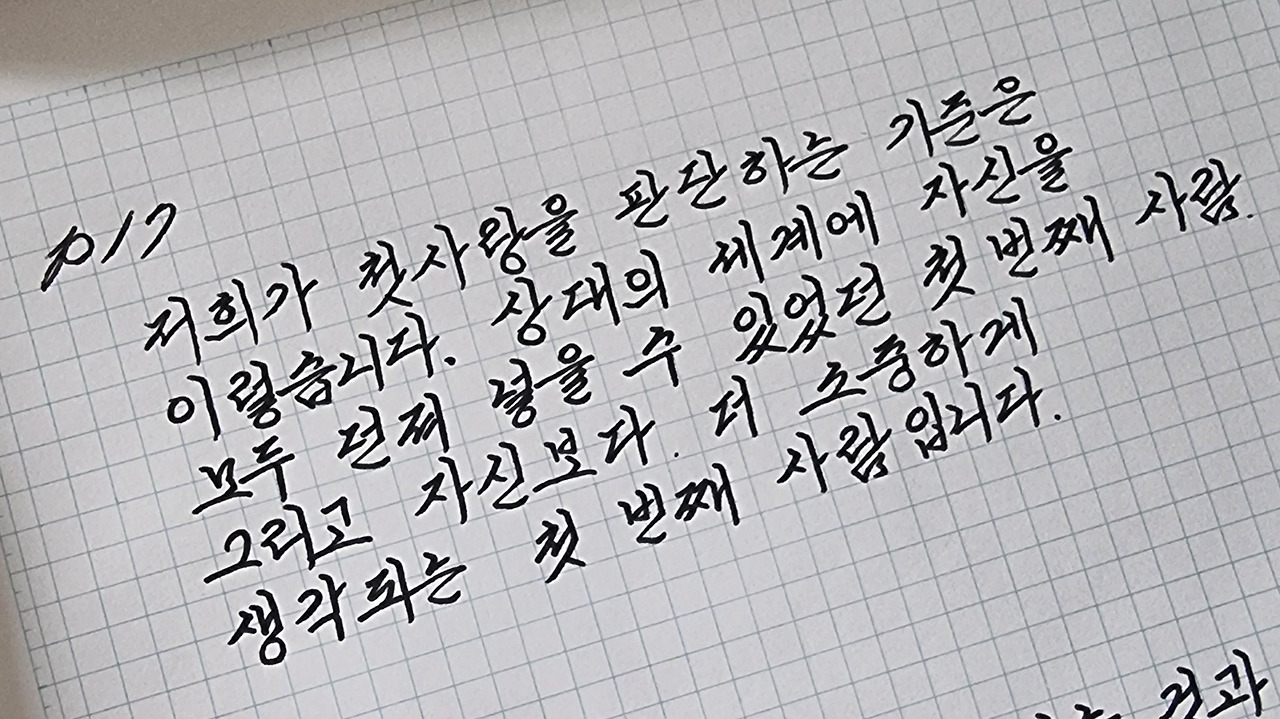 P17
저희가 첫사랑을 판단하는 기준은
이렇습니다. 상대의 세계에 자신을
모두 던져 넣을 수 있었던 첫 번째 사람.
그리고 자신보다 더 소중하게
생각되는 첫 번째 사람입니다.
결과